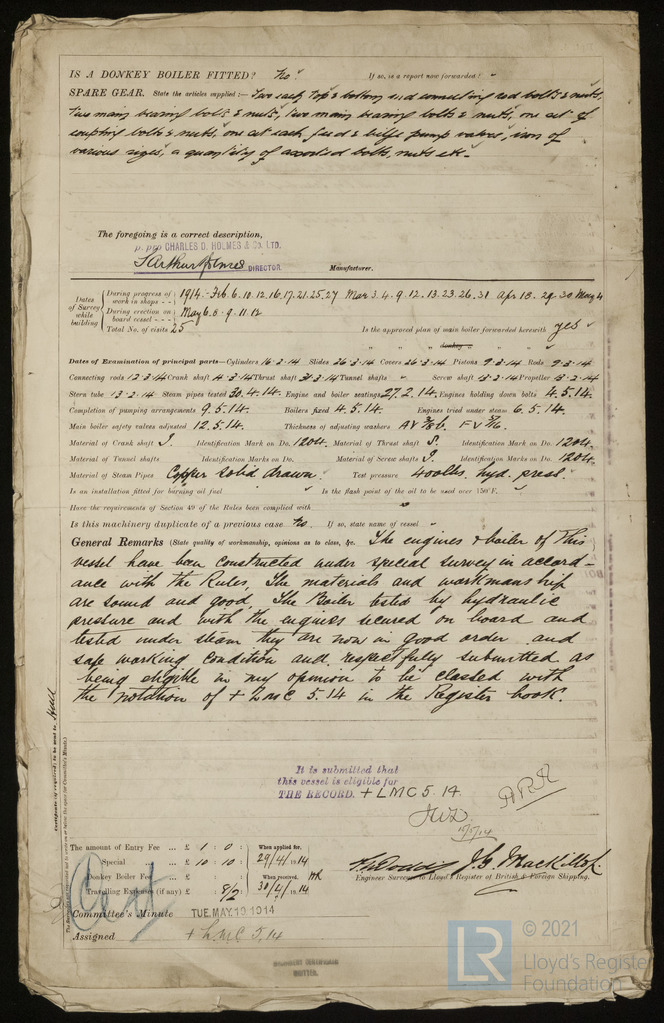 IS A DONKEY BOILER FITTED? No. If so, is a report now forwarded? "
SPARE GEAR. State the articles supplied :— Two each, top & bottom end connecting rod bolts & nuts,
Two main bearing bolts & nuts, Two main bearing bolts & nuts, one set of
coupling bolts & nuts, one set each feed & bilge pump valves, iron of
various sizes, a quantity of assorted bolts, nuts etc –
The foregoing is a correct description,
p. pro CHARLES D. HOLMES & Co. LTD.
Arthur Holmes DIRECTOR. Manufacturer.
Dates of Survey while building
During progress of work in shops - - 1914 - Feb. 6. 10. 12. 16. 17. 21. 25. 27 Mar 3. 4. 9. 12. 13. 23. 26. 31 Apr 18. 29. 30 May 4
During erection on board vessel - - - May 6. 8 - 9. 11. 12
Total No. of visits 25 Is the approved plan of main boiler forwarded herewith yes
" " " donkey " " "
Dates of Examination of principal parts—Cylinders 16.3.14 Slides 26.3.14 Covers 26.3.14 Pistons 9.3.14 Rods 9.3.14
Connecting rods 12.3.14 Crank shaft 4.3.14 Thrust shaft 31.3.14 Tunnel shafts " Screw shaft 13.2.14 Propeller 13.2.14
Stern tube 13.2.14 Steam pipes tested 30.4.14. Engine and boiler seatings 27.2.14. Engines holding down bolts 4.5.14.
Completion of pumping arrangements 9.5.14. Boilers fixed 4.5.14. Engines tried under steam 6.5.14.
Main boiler safety valves adjusted 12.5.14. Thickness of adjusting washers
Material of Crank shaft I. Identification Mark on Do. 1204. Material of Thrust shaft S. Identification Mark on Do. 1204.
Material of Tunnel shafts Identification Marks on Do. Material of Screw shafts I. Identification Marks on Do. 1204
Material of Steam Pipes Copper solid drawn. Test pressure 400 lbs. hyd. press.
Is an installation fitted for burning oil fuel Is the flash point of the oil to be used over 150°F.
Have the requirements of Section 49 of the Rules been complied with "
Is this machinery duplicate of a previous case No. If so, state name of vessel "
General Remarks (State quality of workmanship, opinions as to class, &c. The engines & boiler of this
vessel have been constructed under special survey in accord-
ance with the Rules. The materials and workmanship
are sound and good. The Boiler tested by hydraulic
pressure and with the engines secured on board and
tested under steam they are now in good order and
safe working condition and respectfully submitted as
being eligible in my opinion to be classed with
the notation of + LMC 5.14 in the Register book.
Certificate (if required) to be sent to Hull
It is submitted that
this vessel is eligible for
THE RECORD. + LMC 5.14
The amount of Entry Fee ... £ 1 : 0 : When applied for,
Special ... £ 10 : 10 : 29/4/1914
Donkey Boiler Fee ... £ : : When received,
Travelling Expenses (if any) £ : 8/2 : 30/4/1914
Engineer Surveyor to Lloyd's Register of British & Foreign Shipping.
Committee's Minute TUE. MAY. 19 1914
Assigned + LMC 5.14
MACHINERY CERTIFICATE
WRITTEN.
LR © 2021
Lloyd's Register
Foundation